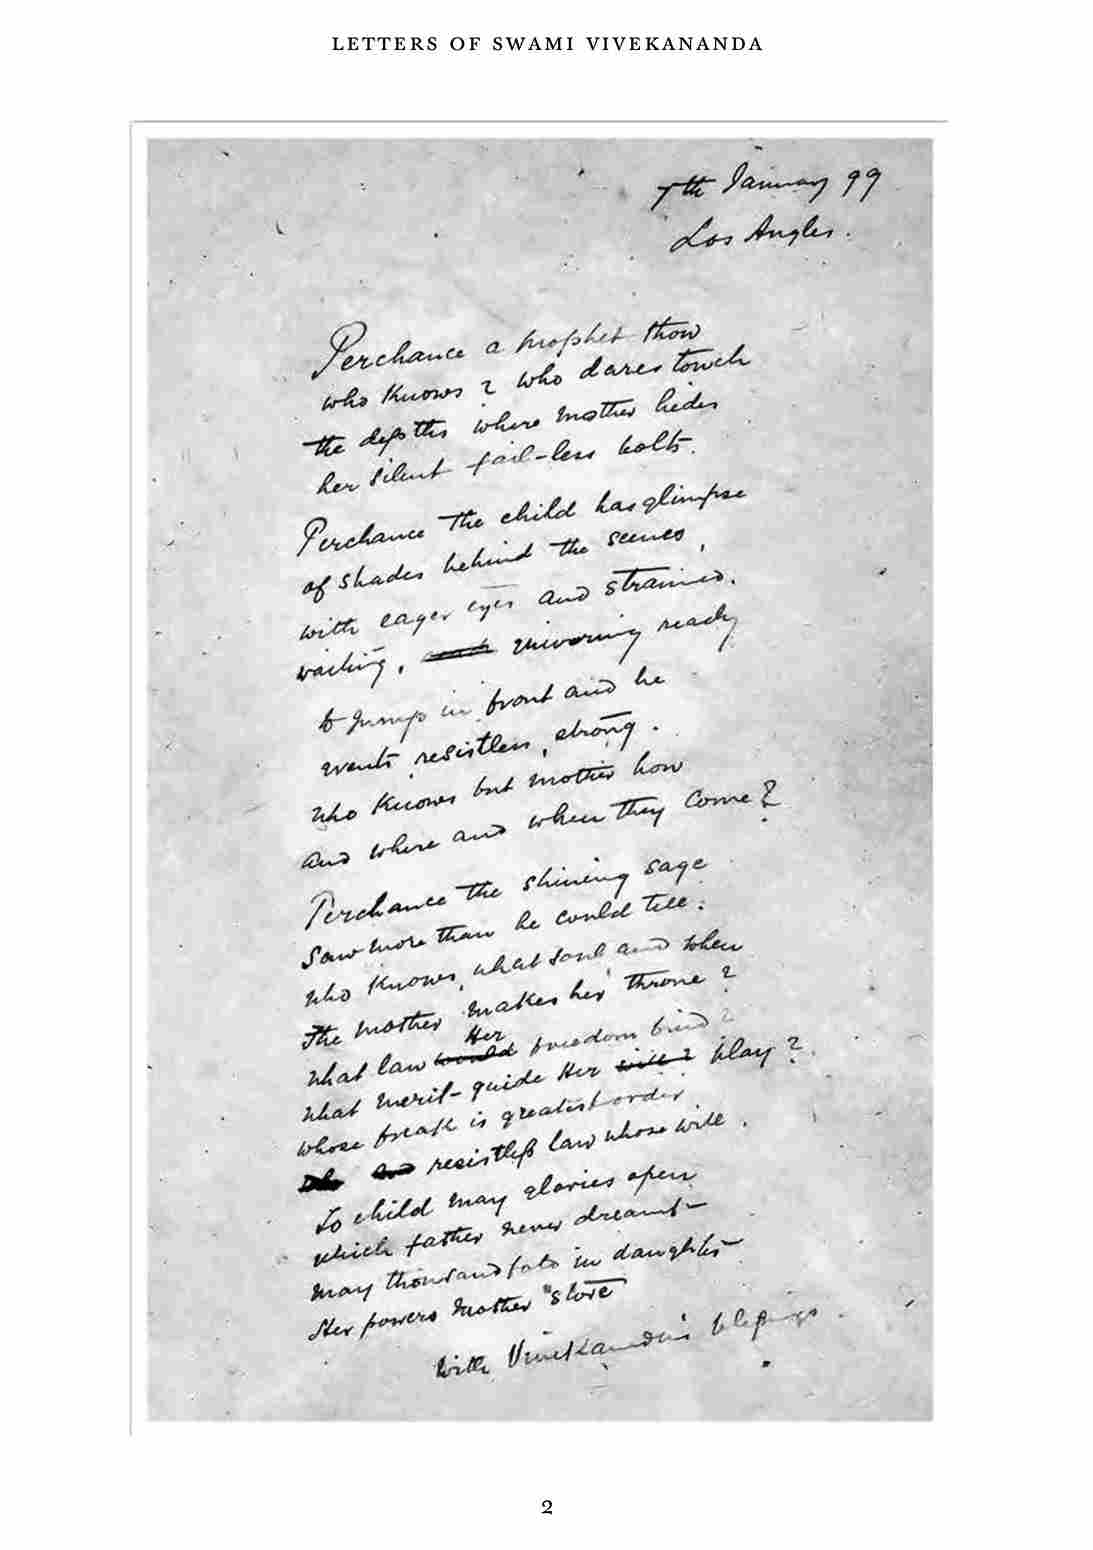 LETTERS OF SWAMI VIVEKANANDA
7th January 99
Los Angles.
Perchance a prophet thou
who knows? who dares touch
the depths where mother hides
her silent fail-less bolts.
Perchance the child has glimpse
of shades behind the scenes,
with eager eyes and strained.
waiting, quivering ready
to jump in front and be
events, resistless, strong.
who knows but mother how
and where and when they come?
Perchance the shining sage
Saw more than he could tell:
who knows, what soul and when
The mother makes her throne?
What law Her freedom bind?
What merit guide Her play?
whose freak is greatest order
resistless law whose will.
To child may glories open
which father never dreamt
may thousandfold in daughter
Her powers mother store
with Vivekananda's blessings.
2